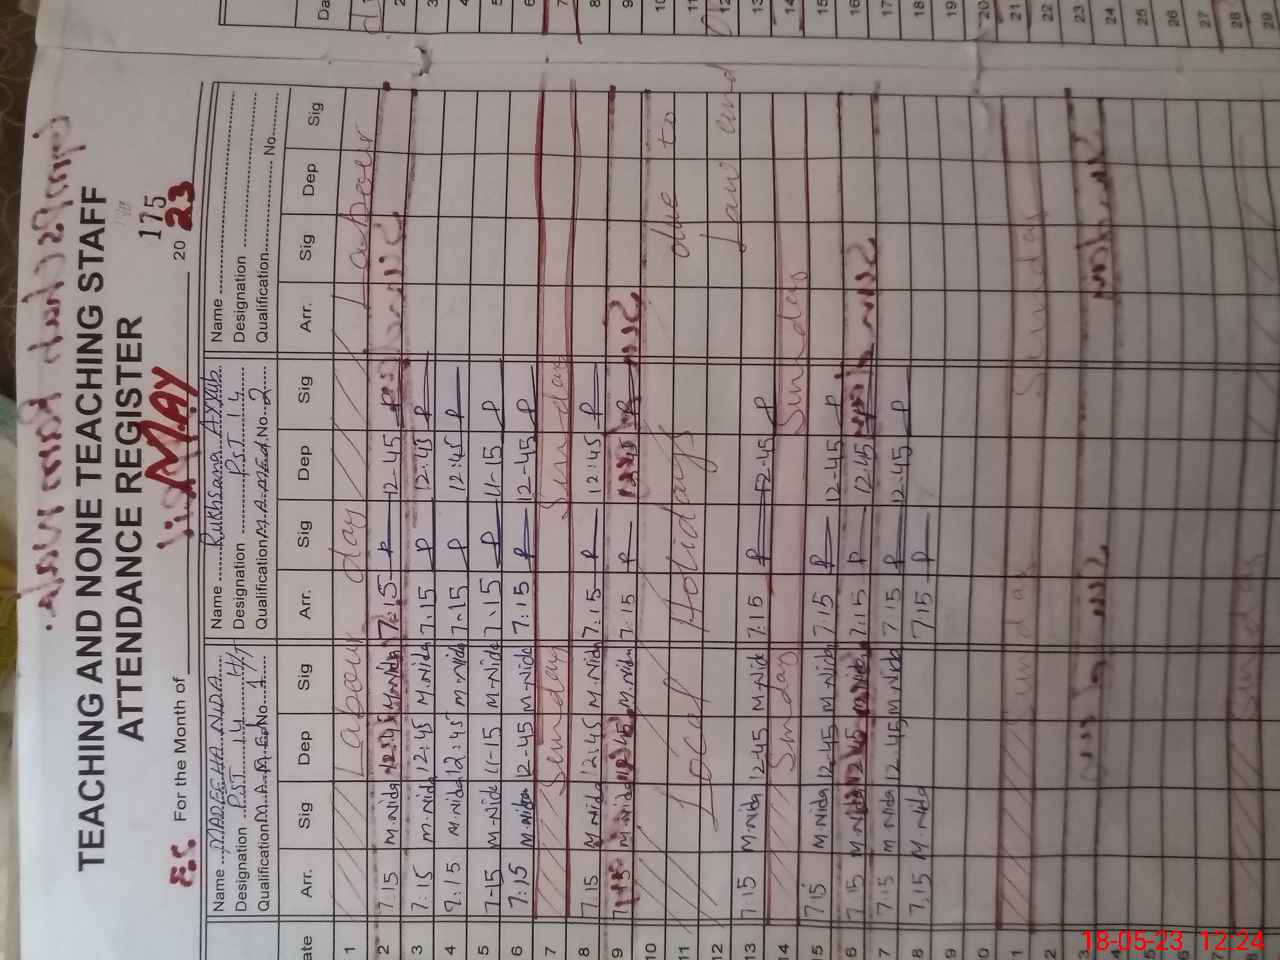 TEACHING AND NONE TEACHING STAFF
ATTENDANCE REGISTER
175
For the Month of MAY 20 23
Name MADEEHA NIDA Name Rukhsana Ayyub Name
Designation P.S.T 14 H/T Designation P.S.T. 14 Designation
Qualification M.A. M.Ed No. 1 Qualification M.A. M.Ed. No. 2 Qualification No.
Date Arr. Sig Dep Sig Arr. Sig Dep Sig Arr. Sig Dep Sig
1 Labour day Labour
2 7:15 M.Nida 12:45 M.Nida 7:15 R 12-45 R
3 7:15 M.Nida 12:45 M.Nida 7.15 R 12:45 R
4 7:15 M.Nida 12:45 M.Nida 7.15 R 12:45 R
5 7-15 M-Nida 11-15 M-Nida 7.15 R 11-15 R
6 7:15 M.Nida 12-45 M-Nida 7:15 R 12-45 R
7 Sunday Sunday
8 7:15 M.Nida 12:45 M.Nida 7:15 R 12:45 R
9 7:15 M.Nida 12:45 M.Nida 7:15 R 12:45 R
10 due to
11 Local Holidays
12 Law and
13 7:15 M.Nida 12-45 M-Nida 7:15 R 12-45 R
14 Sunday Sunday
15 7:15 M.Nida 12-45 M.Nida 7:15 R 12-45 R
16 7:15 M.Nida 12-45 M.Nida 7:15 R 12.45 R
17 7:15 M.Nida 12-45 M.Nida 7:15 R 12.45 R
18 7.15 M.Nida 7:15 R
Sunday Sunday
Sunday
Da
1
2
3
4
5
6
7
8
9
10
11
12
13
14
15
16
17
18
19
20
21
22
23
24
25
26
27
28
29
18-05-23 12:24